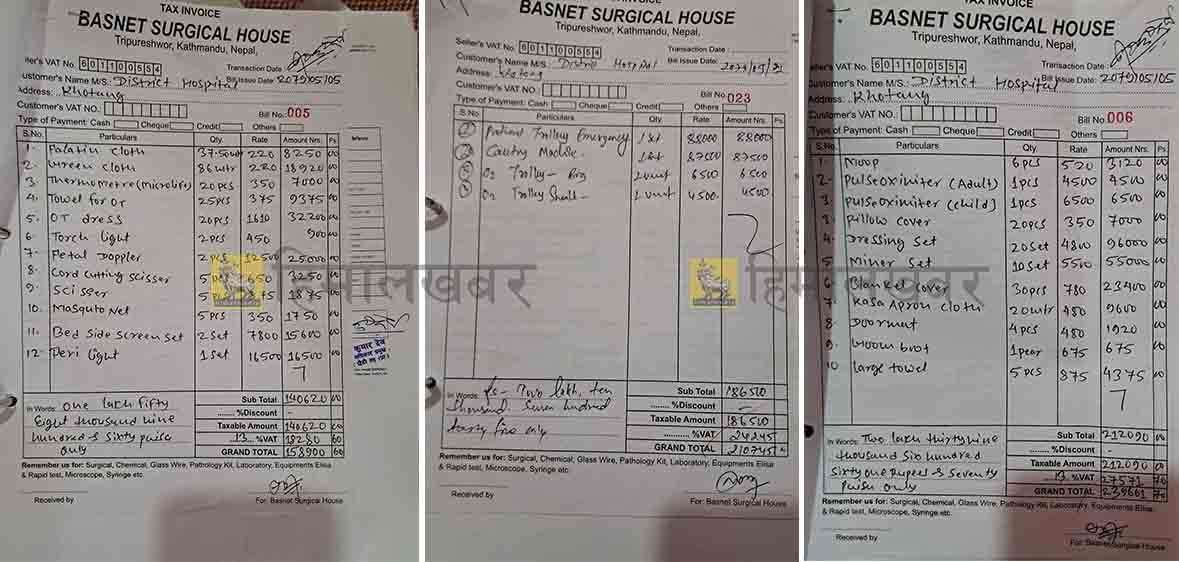 TAX INVOICE
BASNET SURGICAL HOUSE
Tripureshwor, Kathmandu, Nepal,
ller's VAT No. 601100554
Transaction Date :
Customer's Name M/S.: District Hospital Bill Issue Date: 2079/05/05
Address: Khotang
Customer's VAT NO.:
Bill No.: 005
Type of Payment: Cash Cheque Credit Others
S.No. Particulars Qty. Rate Amount Nrs. Ps.
1. Falatin cloth 37.50mtr 220 8250 00
2. Green cloth 86 mtr 220 18920 00
3. Thermometre (microlife) 20 pcs 350 7000 00
4. Towel for OT 25 pcs 375 9375 00
5. OT dress 20 pcs 1610 32200 00
6. Torch light 2 pcs 450 900 00
7. Fetal Doppler 2 pcs 12500 25000 00
8. Cord cutting scisser 5 pcs 650 3250 00
9. Scisser 5 375 1875 00
10. Mosquto Net 5 pcs 350 1750 00
11. Bed Side screen set 2 Set 7800 15600 00
12. Peri light 1 Set 16500 16500 00
Sub Total 140620 00
In Words: one lakh fifty
.......%Discount -
Eight thousand nine
Taxable Amount 140620 00
hundred & sixty paisa
13 %VAT 18280 60
only
GRAND TOTAL 158900 60
Remember us for: Surgical, Chemical, Glass Wire, Pathology Kit, Laboratory, Equipments Elisa
& Rapid test, Microscope, Syringe etc.
Received by
For: Basnet Surgical House
कुमार देव
BASNET SURGICAL HOUSE
Tripureshwor, Kathmandu, Nepal,
Seller's VAT No. 601100554
Transaction Date :
Customer's Name M/S.: District Hospital Bill Issue Date:
Address: Khotang
Customer's VAT NO.:
Bill No.: 023
Type of Payment: Cash Cheque Credit Others
S.No. Particulars Qty. Rate Amount Nrs. Ps.
1 Patient Trolley Emergency 1 Set 88000 88000
2 Cautry Machine 1 Set 87500 87500
3 O2 Trolley - Big 1 unit 6500 6500
4 O2 Trolley Small - 1 unit 4500 4500
Sub Total 186500
In Words: Rs - Two lakh, ten
.......%Discount -
thousand. Seven hundred
Taxable Amount 186500
forty five only
.......%VAT 24245
GRAND TOTAL 210745
Remember us for: Surgical, Chemical, Glass Wire, Pathology Kit, Laboratory, Equipments Elisa
& Rapid test, Microscope, Syringe etc.
Received by
For: Basnet Surgical House
TAX INVOICE
BASNET SURGICAL HOUSE
Tripureshwor, Kathmandu, Nepal,
Seller's VAT No. 601100554
Transaction Date :
Customer's Name M/S.: District Hospital Bill Issue Date: 2079/05/05
Address: Khotang
Customer's VAT NO.:
Bill No.: 006
Type of Payment: Cash Cheque Credit Others
S.No. Particulars Qty. Rate Amount Nrs. Ps.
1. Moop 6 pcs 520 3120 00
2. Pulseoximiter (Adult) 1 pcs 4500 4500 00
3. pulseoximiter (child) 1 pcs 6500 6500 00
3. Pillow cover 20 pcs 350 7000 00
4. Dressing set 20 Set 4800 96000 00
5. Miner set 10 Set 5500 55000 00
6. Blanket cover 30 pcs 780 23400 00
7. Rasa Apron cloth 20 mtr 480 9600 00
8. Doormat 4 pcs 480 1920 00
9. Woom boot 1 pear 675 675 00
10 large towel 5 pcs 875 4375 00
Sub Total 212090 00
In Words: Two lakh thirty nine
.......%Discount -
thousand six hundred
Taxable Amount 212090 00
sixty one Rupees & seventy
13 %VAT 27571 70
paisa only
GRAND TOTAL 239661 70
Remember us for: Surgical, Chemical, Glass Wire, Pathology Kit, Laboratory, Equipments Elisa
& Rapid test, Microscope, Syringe etc.
Received by
For: Basnet Surgical House
हिमालखबर
हिमालखबर